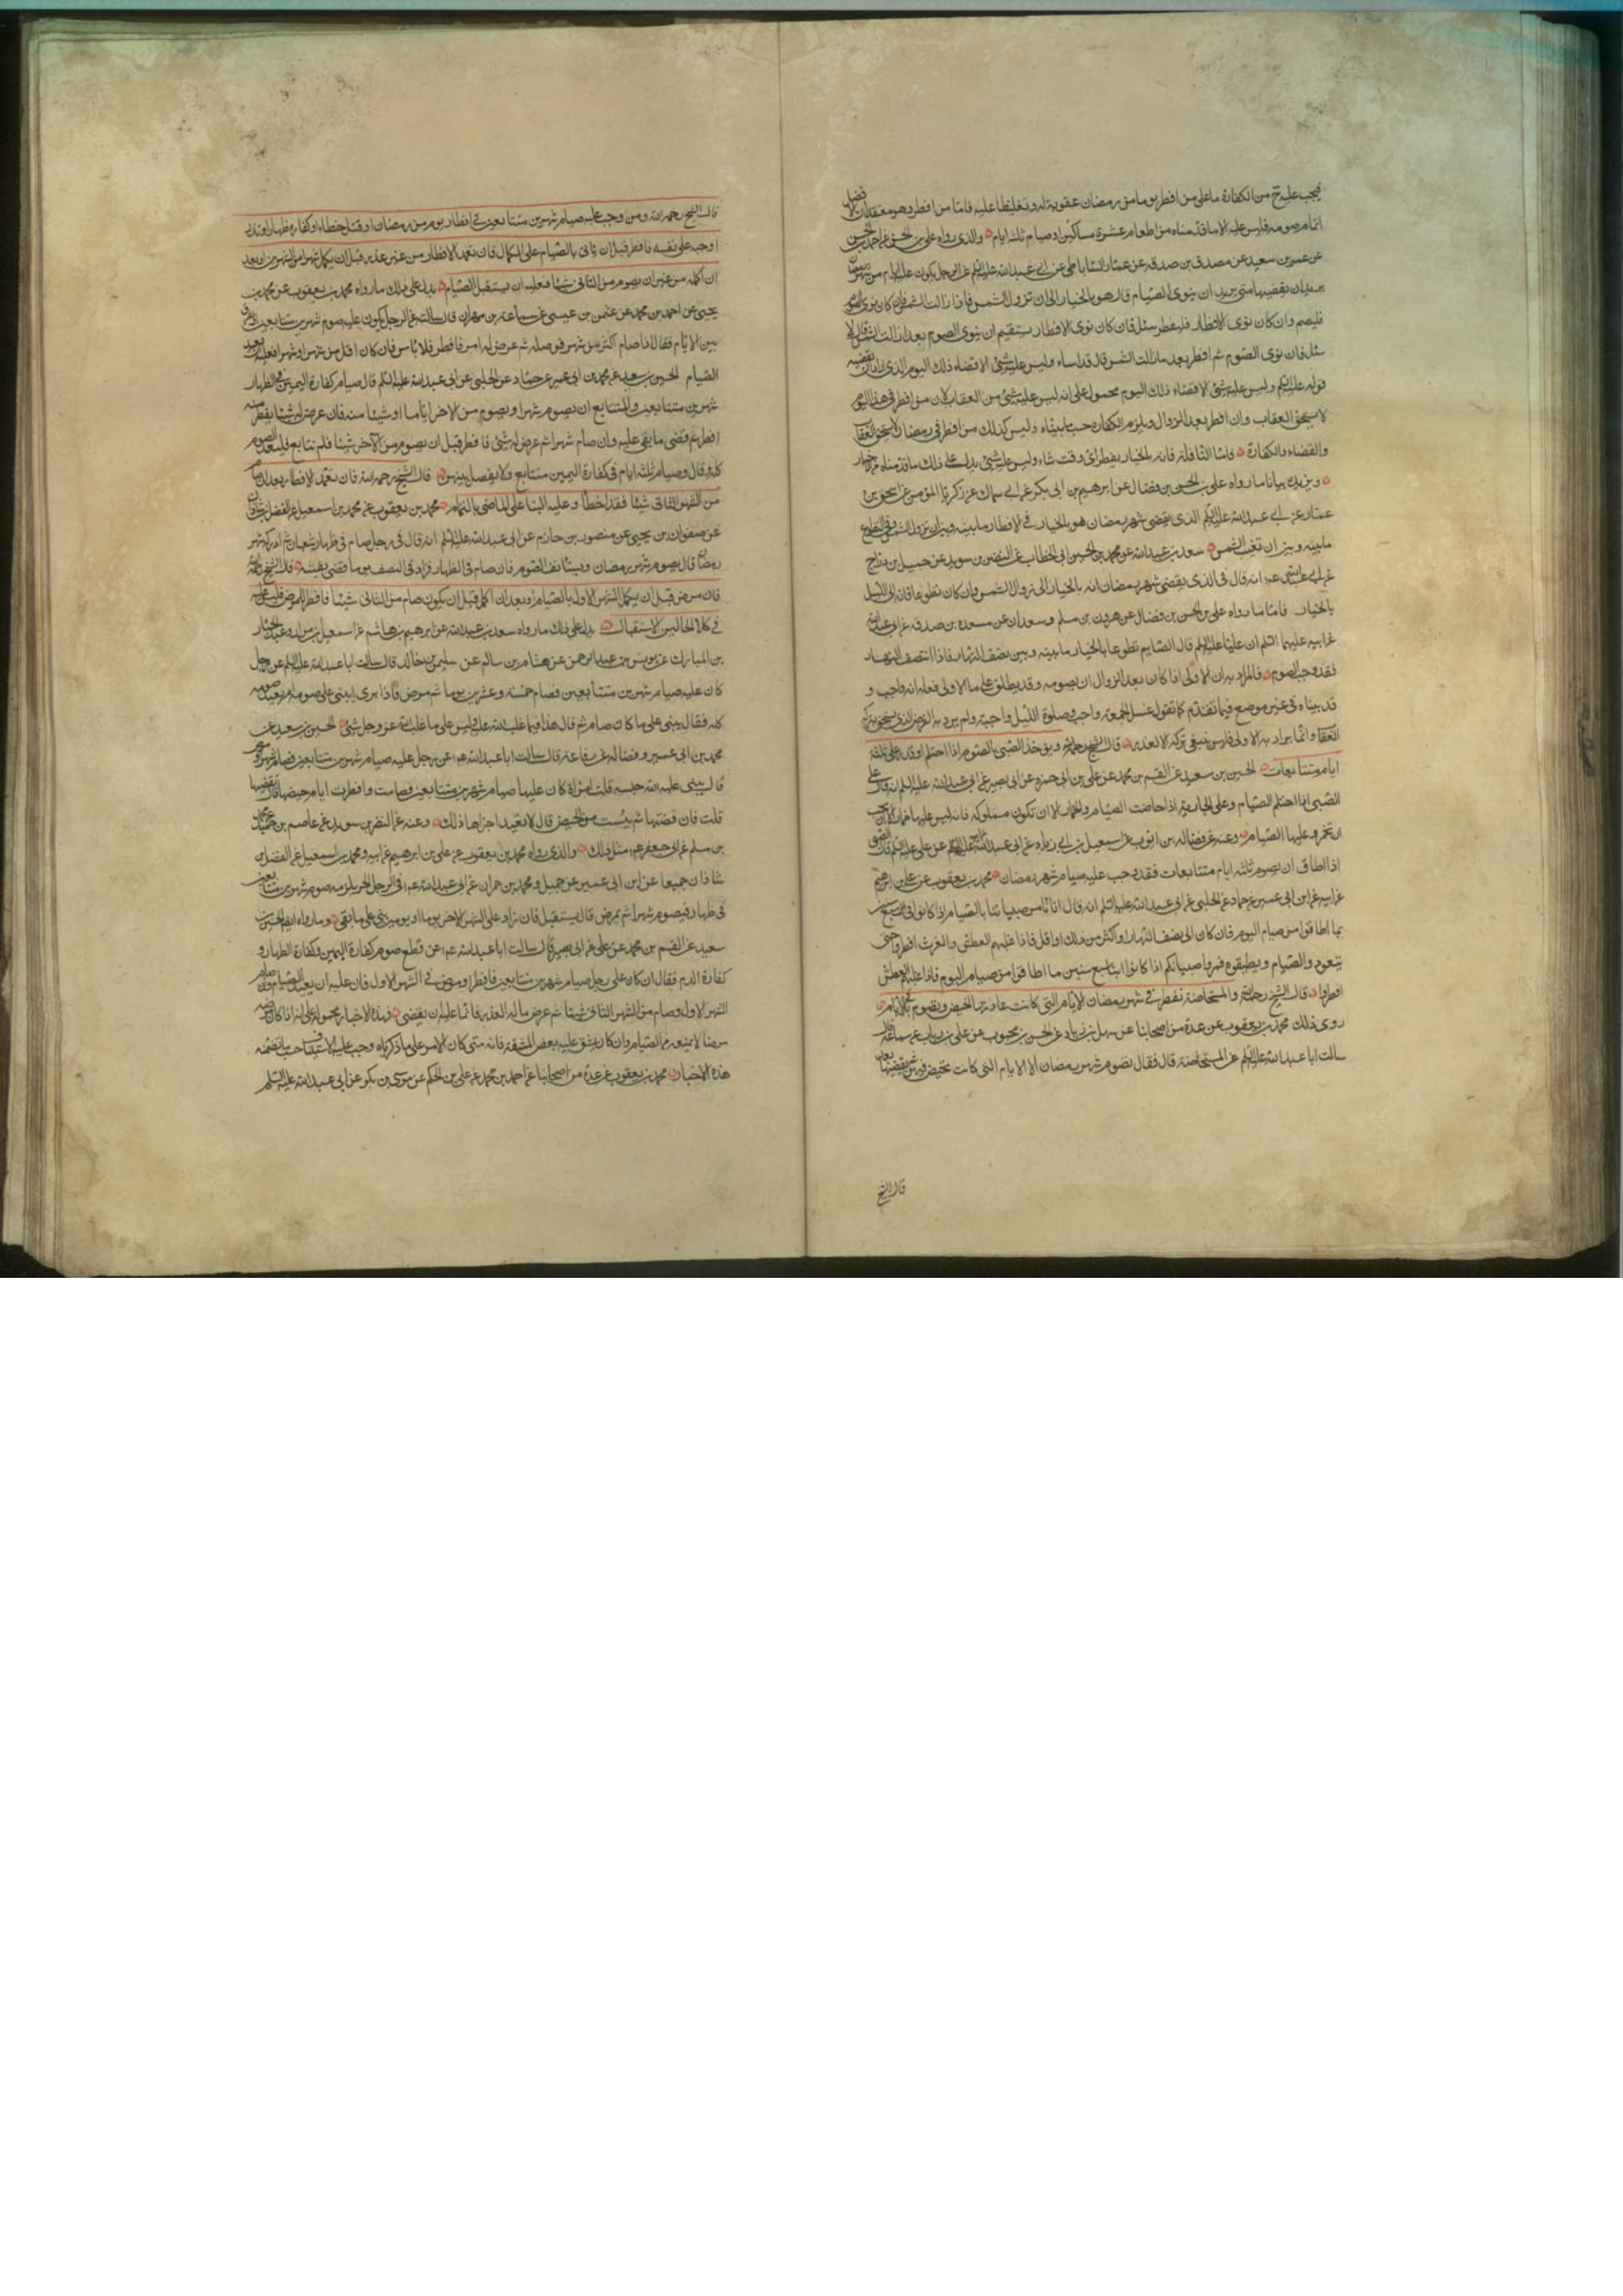 فيجب عليه ح من الكفارة ما على من افطر يوما من رمضان عقوبة له وتغليظا عليه فاما من افطر وهو معتقد ان الافضل
اتمام صومه فليس عليه الا ما قدمناه من اطعام عشرة مساكين او صيام ثلثة ايام والذي رواه علي بن الحسن عن احمد بن الحسن
عن عمرو بن سعيد عن مصدق بن صدقه عن عمار الساباطي عن ابي عبد الله عليه السلم عن الرجل يكون عليه ايام من شهر رمضان
يريد ان يقضيها متى يريد ان ينوى الصيام قال هو بالخيار الى ان تزول الشمس فاذا زالت الشمس فان كان نوى الصوم
فليصم وان كان نوى الافطار فليفطر سئل فان كان نوى الافطار يستقيم ان ينوى الصوم بعد ان زالت الشمس قال لا
سئل فان نوى الصوم ثم افطر بعد ما زالت الشمس قال قد اساء وليس عليه شئ الا قضاء ذلك اليوم الذي اراد ان يقضيه
قوله عليه السلم وليس عليه شئ الا قضاء ذلك اليوم محمول على انه ليس عليه شئ من العقاب لان من افطر في هذا اليوم
لا يستحق العقاب وان افطر بعد الزوال ويلزم الكفاره حسبما بيناه وليس كذلك من افطر في رمضان لانه يستحق العقاب
والقضاء والكفارة فاما النافلة فانه بالخيار يفطر اي وقت شاء وليس عليه شئ يدل على ذلك ما قدمناه من خيار
ويزيده بيانا ما رواه علي بن الحسن بن فضال عن ابرهيم بن ابي بكر عن ابي سماك عن زكريا المؤمن عن اسحق بن
عمار عن ابي عبد الله عليه السلم الذي يقضى شهر رمضان هو بالخيار في الافطار ما بينه وبين ان تزول الشمس وفي التطوع
ما بينه وبين ان تغيب الشمس سعد بن عبد الله عن محمد بن الحسين ابي الخطاب عن النضر بن سويد عن جميل بن دراج
عن ابي عبد الله ع انه قال في الذي يقضى شهر رمضان انه بالخيار الى زوال الشمس وان كان تطوعا فانه الى الليل
بالخيار فاما ما رواه علي بن الحسن بن فضال عن هرون بن مسلم وسعدان عن مسعدة بن صدقه عن ابي عبد الله
عن ابيه عليهما السلم ان عليا عليه السلم قال الصايم تطوعا بالخيار ما بينه وبين نصف النهار فاذا انتصف النهار
فقد وجب الصوم فالمراد به ان الاولى اذا كان بعد الزوال ان يصومه وقد يطلق على ما الاولى فعله انه واجب و
قد بيناه في غير موضع فيما تقدم كما تقول غسل الجمعة واجب وصلوة الليل واجبة ولم يرد به الفرض الذي يستحق بتركه
العقاب وانما يراد به الاولى فليس ينبغي تركه الا لعذر قال الشيخ رحمه الله ويؤخذ الصبي بالصوم اذا احتلم او قدر على ثلثة
ايام متتابعات الحسين بن سعيد عن القسم بن محمد عن علي بن ابي حمزه عن ابي بصير عن ابي عبد الله عليه السلم انه قال على
الصبي اذا احتلم الصيام وعلى الجارية اذا حاضت الصيام والخمار الا ان تكون مملوكه فانه ليس عليها خمار الا ان تحب
ان تختمر وعليها الصيام وعنه عن فضاله بن ايوب عن اسمعيل بن ابي زياد عن ابي عبد الله عن ابيه عليهما السلم عن علي عليه السلم قال الصبي
اذا اطاق ان يصوم ثلثة ايام متتابعات فقد وجب عليه صيام شهر رمضان محمد بن يعقوب عن علي بن ابرهيم
عن ابيه عن ابن ابي عمير عن حماد عن الحلبي عن ابي عبد الله عليه السلم انه قال انا نامر صبياننا بالصيام اذا كانوا بني سبع سنين
بما اطاقوا من صيام اليوم فان كان الى نصف النهار او اكثر من ذلك او اقل فاذا غلبهم العطش والغرث افطروا حتى
يتعودوا الصيام ويطيقوه فمروا صبيانكم اذا كانوا ابناء تسع سنين ما اطاقوا من صيام اليوم فاذا غلبهم العطش
افطروا قال الشيخ رحمه الله والمستحاضة تفطر في شهر رمضان الايام التي كانت عادتها الحيض وتصوم باقي الايام
روى ذلك محمد بن يعقوب عن عدة من اصحابنا عن سهل بن زياد عن الحسن بن محبوب عن علي بن رياب عن سماعة قال
سالت ابا عبد الله عليه السلم عن المستحاضة قال فقال تصوم شهر رمضان الا الايام التي كانت تحيض فيهن ثم تقضيها بعد
قال الشيخ
قال الشيخ رحمه الله ومن وجب عليه صيام شهرين متتابعين في افطار يوم من رمضان او قتل خطاء او كفارة ظهار او نذر
اوجبه على نفسه فافطر قبل ان ياتي بالصيام على الكمال فان تعمد الافطار من غير عذر قبل ان يكمل شهرا من الشهرين او بعد
ان اكمله من غير ان يصوم من الثاني شيئا فعليه ان يستقبل الصيام يدل على ذلك ما رواه محمد بن يعقوب عن محمد بن
يحيى عن احمد بن محمد عن عثمن بن عيسى عن سماعة بن مهران قال سالته عن الرجل يكون عليه صوم شهرين متتابعين ايفرق
بين الايام فقال اذا صام اكثر من شهر فوصله ثم عرض له امر فافطر فلا باس فان كان اقل من شهر او شهرا فعليه ان يعيد
الصيام الحسين بن سعيد عن محمد بن ابي عمير عن حماد عن الحلبي عن ابي عبد الله عليه السلم قال صيام كفارة اليمين في الظهار
شهرين متتابعين والتتابع ان يصوم شهرا ويصوم من الاخر اياما او شيئا منه فان عرض له شئ يفطر منه
افطر ثم قضى ما بقي عليه وان صام شهرا ثم عرض له شئ فافطر قبل ان يصوم من الآخر شيئا فلم يتابع فليعد الصوم
كله وقال وصيام ثلثة ايام في كفارة اليمين متتابع ولا يفصل بينهن قال الشيخ رحمه الله فان تعمد الافطار بعد ان صام
من الشهر الثاني شيئا فقد اخطا وعليه البنا على الماضي بالتمام محمد بن يعقوب عن محمد بن اسمعيل عن الفضل بن شاذان
عن صفوان بن يحيى عن منصور بن حازم عن ابي عبد الله عليه السلم انه قال في رجل صام في ظهار شعبان ثم ادركه شهر
رمضان قال يصوم شهر رمضان ويستانف الصوم فان صام في الظهار فزاد في النصف يوما قضى بقيته قال الشيخ رحمه الله
فان مرض قبل ان يكمل الشهر الاول بالصيام او بعد ان اكمل قبل ان يكون صام من الثاني شيئا فافطر للمرض فليس عليه
في كلا الحالين الاستقبال يدل على ذلك ما رواه سعد بن عبد الله عن ابرهيم بن هاشم عن اسمعيل بن مرار وعبد الجبار
بن المبارك عن يونس بن عبد الرحمن عن هشام بن سالم عن سليمن بن خالد قال سالت ابا عبد الله عليه السلم عن رجل
كان عليه صيام شهرين متتابعين فصام خمسة وعشرين يوما ثم مرض فاذا برى ايبني على صومه ام يعيد صومه
كله فقال يبني على ما كان صام ثم قال هذا مما غلب الله عليه وليس على ما غلب الله عز وجل شئ الحسين بن سعيد عن
محمد بن ابي عمير وفضاله عن رفاعة قال سالت ابا عبد الله ع عن رجل عليه صيام شهرين متتابعين فصام شهرا ومرض
قال يبني عليه الله حبسه قلت امراة كان عليها صيام شهرين متتابعين فصامت وافطرت ايام حيضها قال تقضيها
قلت فان قضتها ثم يئست من الحيض قال لا تعيد اجزاها ذلك وعنه عن النضر بن سويد عن عاصم بن حميد عن محمد
بن مسلم عن ابي جعفر ع مثل ذلك والذي رواه محمد بن يعقوب عن علي بن ابرهيم عن ابيه ومحمد بن اسمعيل عن الفضل بن
شاذان جميعا عن ابن ابي عمير عن جميل ومحمد بن حمران عن ابي عبد الله ع في الرجل الحر يلزمه صوم شهرين متتابعين
في ظهار فيصوم شهرا ثم يمرض قال يستقبل فان زاد على الشهر الاخر يوما او يومين بنى على ما بقي وما رواه ايضا الحسين بن
سعيد عن القسم بن محمد عن علي عن ابي بصير قال سالت ابا عبد الله ع عن قطع صوم كفارة اليمين وكفارة الظهار و
كفارة الدم فقال ان كان على رجل صيام شهرين متتابعين فافطر او مرض في الشهر الاول فان عليه ان يعيد الصيام وان صام
الشهر الاول وصام من الشهر الثاني شيئا ثم عرض ماله العذر فانما عليه ان يقضى فهذه الاخبار محمولة على انه اذا كان مرضه
مرضا لا يمنعه من الصيام وان كان يشق عليه بعض المشقة فانه متى كان الامر على ما ذكرناه وجب عليه الاستيناف حسب ما تضمنه
هذه الاخبار محمد بن يعقوب عن عدة من اصحابنا عن احمد بن محمد عن علي بن الحكم عن موسى بن بكر عن ابي عبد الله عليه السلم